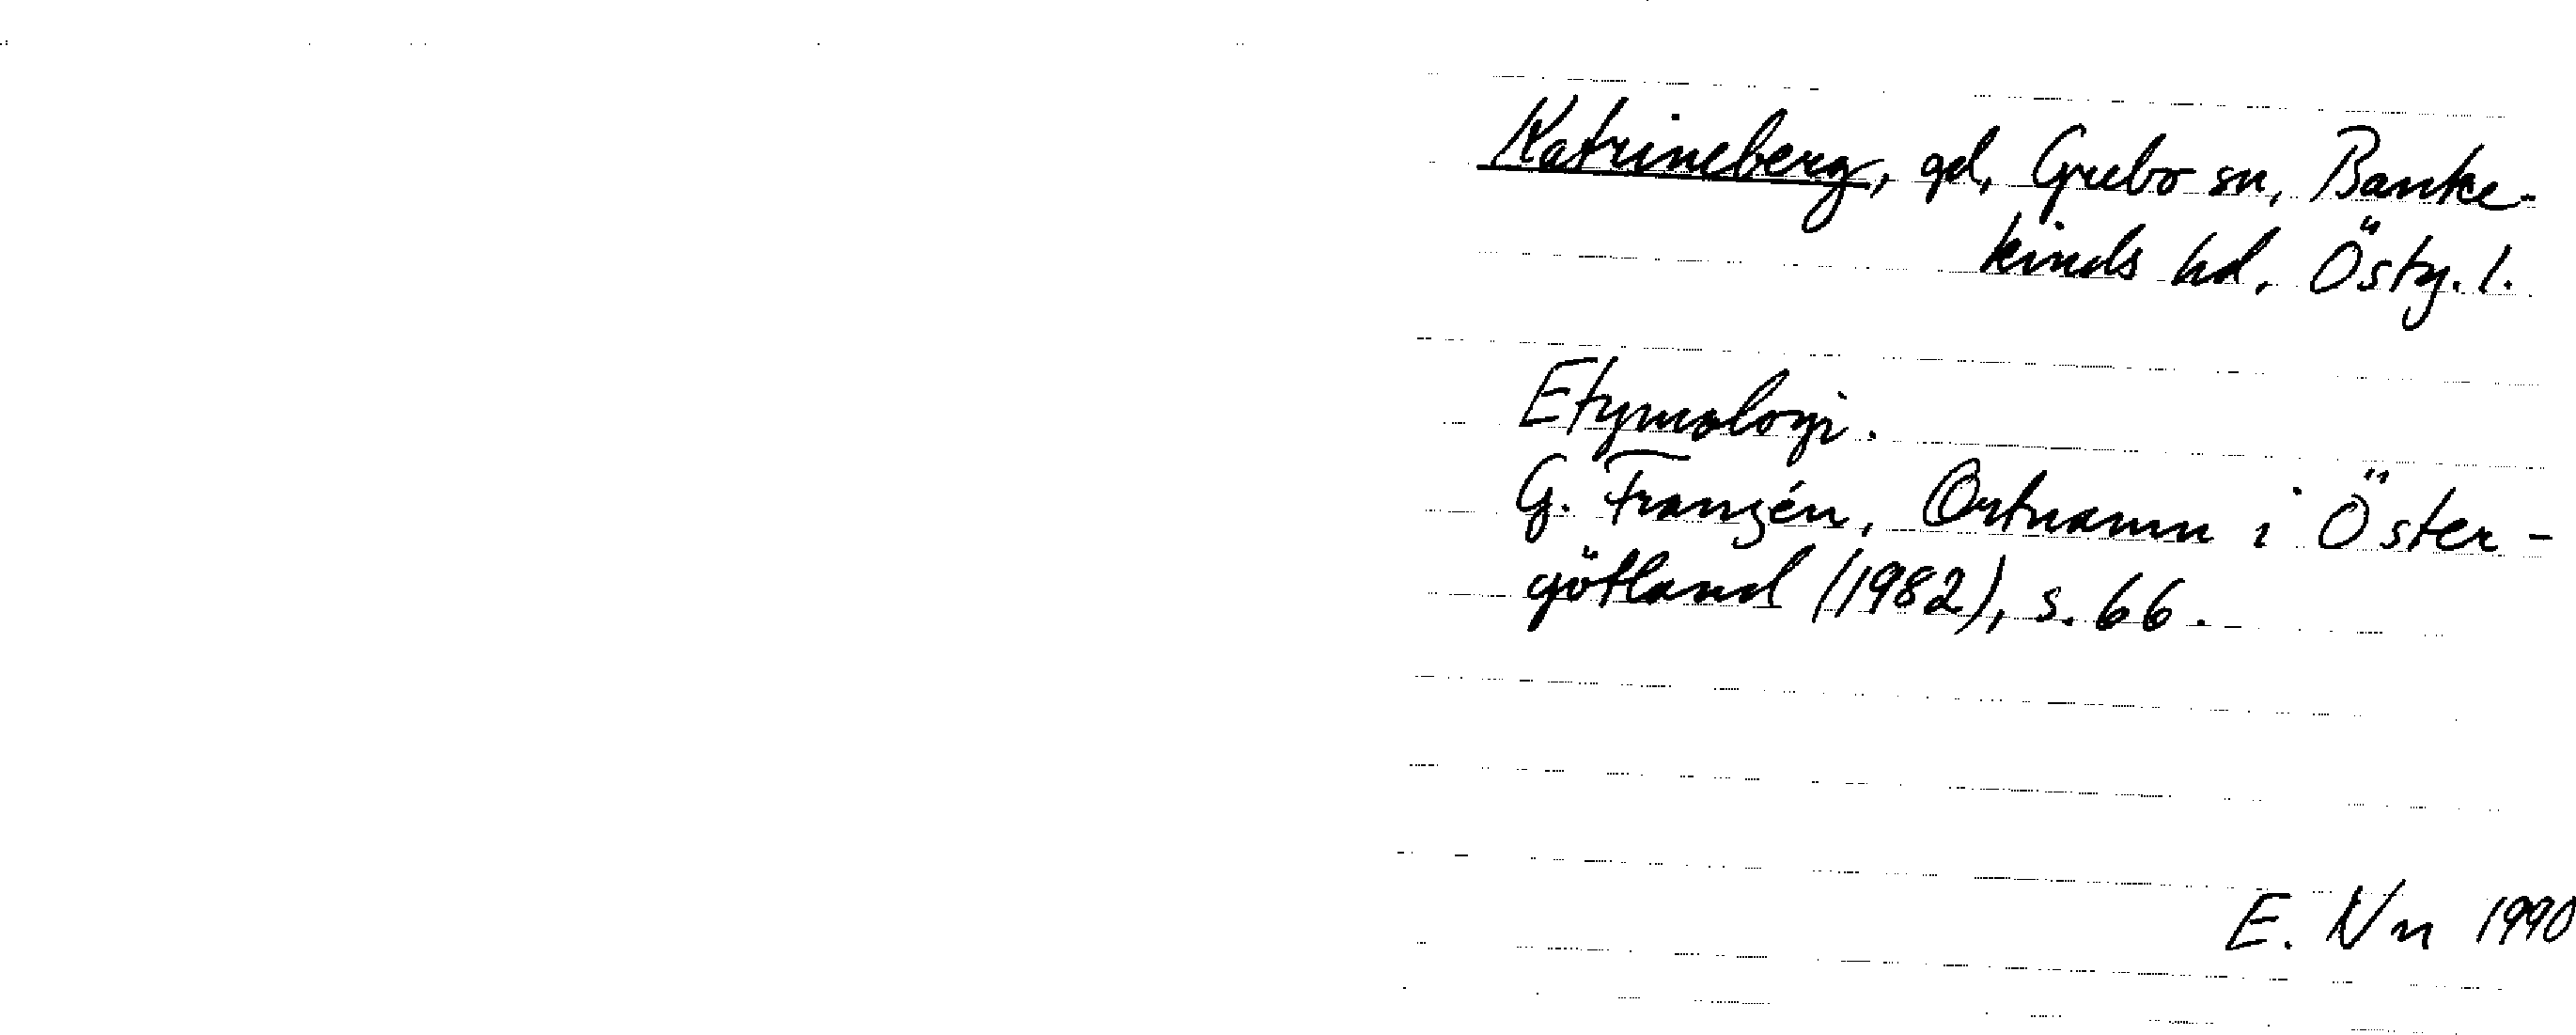 Katrineberg, gd, Grebo sn, Banke-
kinds hd, Östg. l.
Etymologi.
G. Franzén, Ortnamn i Öster-
götland (1982), s. 66.
E. Nn 1990